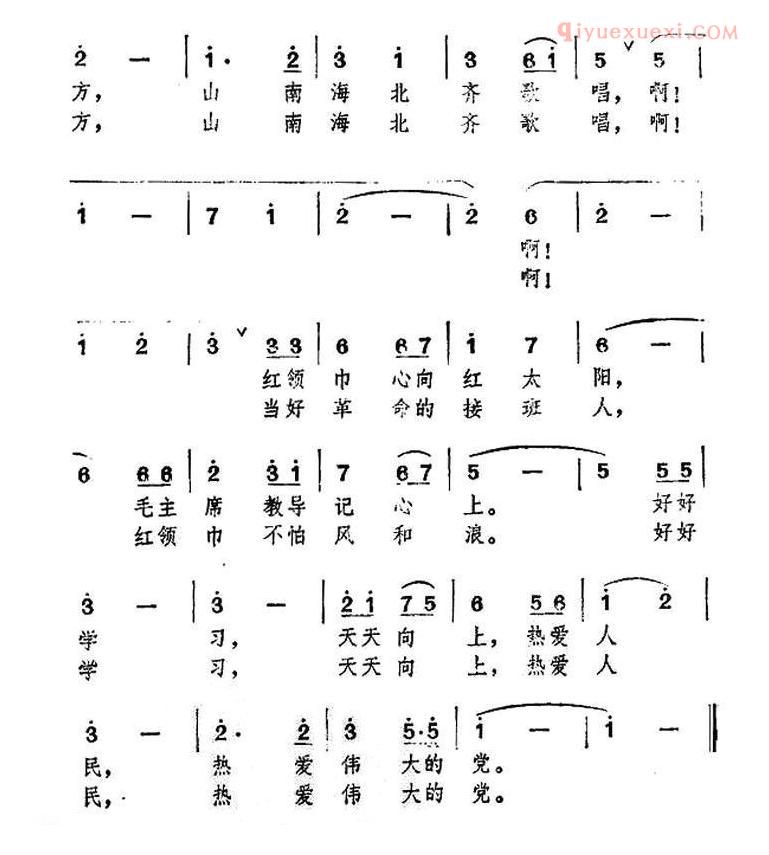 qiyuexuexi.com
2̇ — | 1̇· 2̇ | 3̇ 1̇ | 3 6 1̇ | 5 ∨ 5 |
方, 山 南 海 北 齐 歌 唱, 啊!
方, 山 南 海 北 齐 歌 唱, 啊!
1̇ — | 7 1̇ | 2̇ — | 2̇ 6 | 2̇ — |
啊!
啊!
1̇ 2̇ | 3̇ ∨ 3̇ 3̇ | 6 6 7 | 1̇ 7 | 6 — |
红领 巾 心向 红 太 阳,
当好 革 命的 接 班 人,
6 6 6 | 2̇ 3̇ 1̇ | 7 6 7 | 5 — | 5 5 5 |
毛主 席 教导 记 心 上。 好好
红领 巾 不怕 风 和 浪。 好好
3̇ — | 3̇ — | 2̇ 1̇ 7 5 | 6 5 6 | 1̇ 2̇ |
学 习, 天天 向 上, 热爱 人
学 习, 天天 向 上, 热爱 人
3̇ — | 2̇· 2̇ | 3̇ 5̇·5̇ | 1̇ — | 1̇ — ‖
民, 热 爱 伟 大的 党。
民, 热 爱 伟 大的 党。